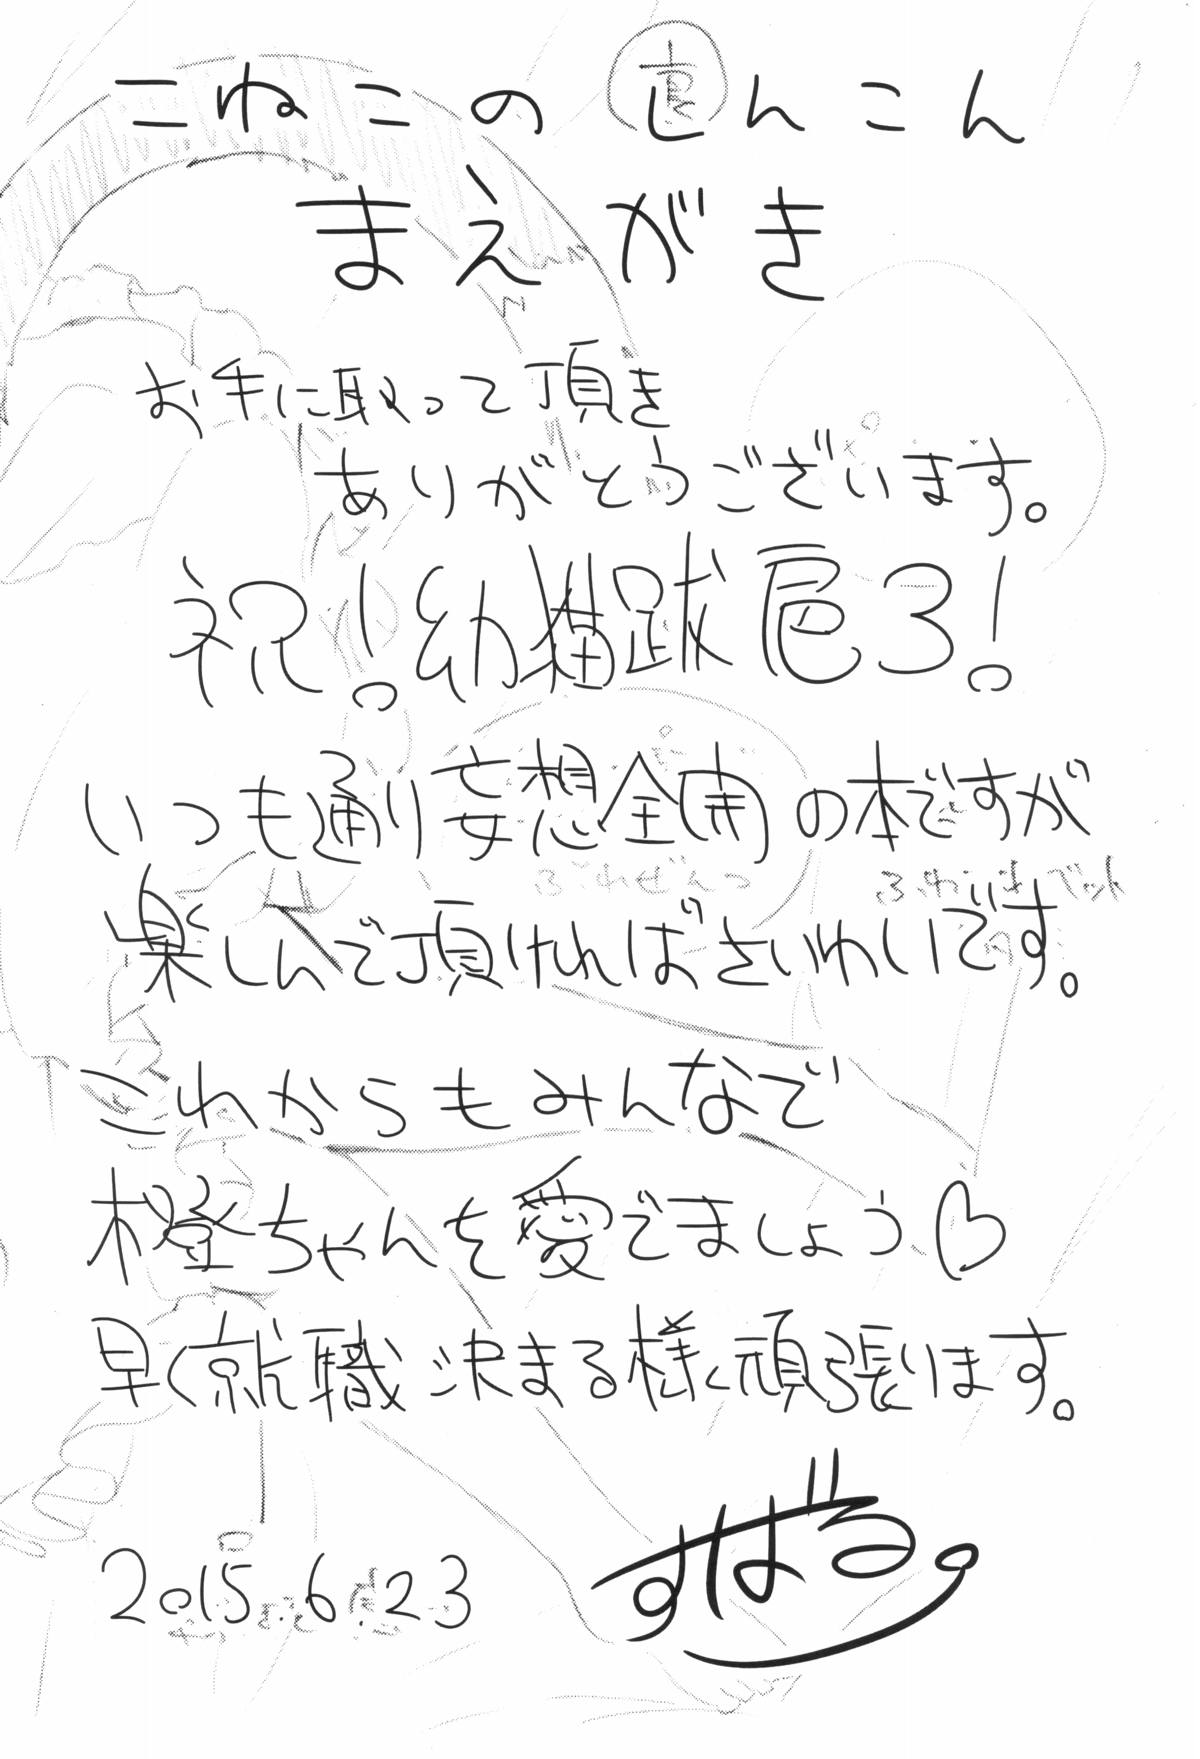 こねこのしんこん
まえがき
お手に取って頂き
ありがとうございます。
祝!幼猫跋扈3!
いつも通り妄想全開の本ですが
楽しんで頂ければさいわいです。
これからもみんなで
橙ちゃんを愛でましょう♡
早く就職決まる様く頑張ります。
2015.6.23
すばる。